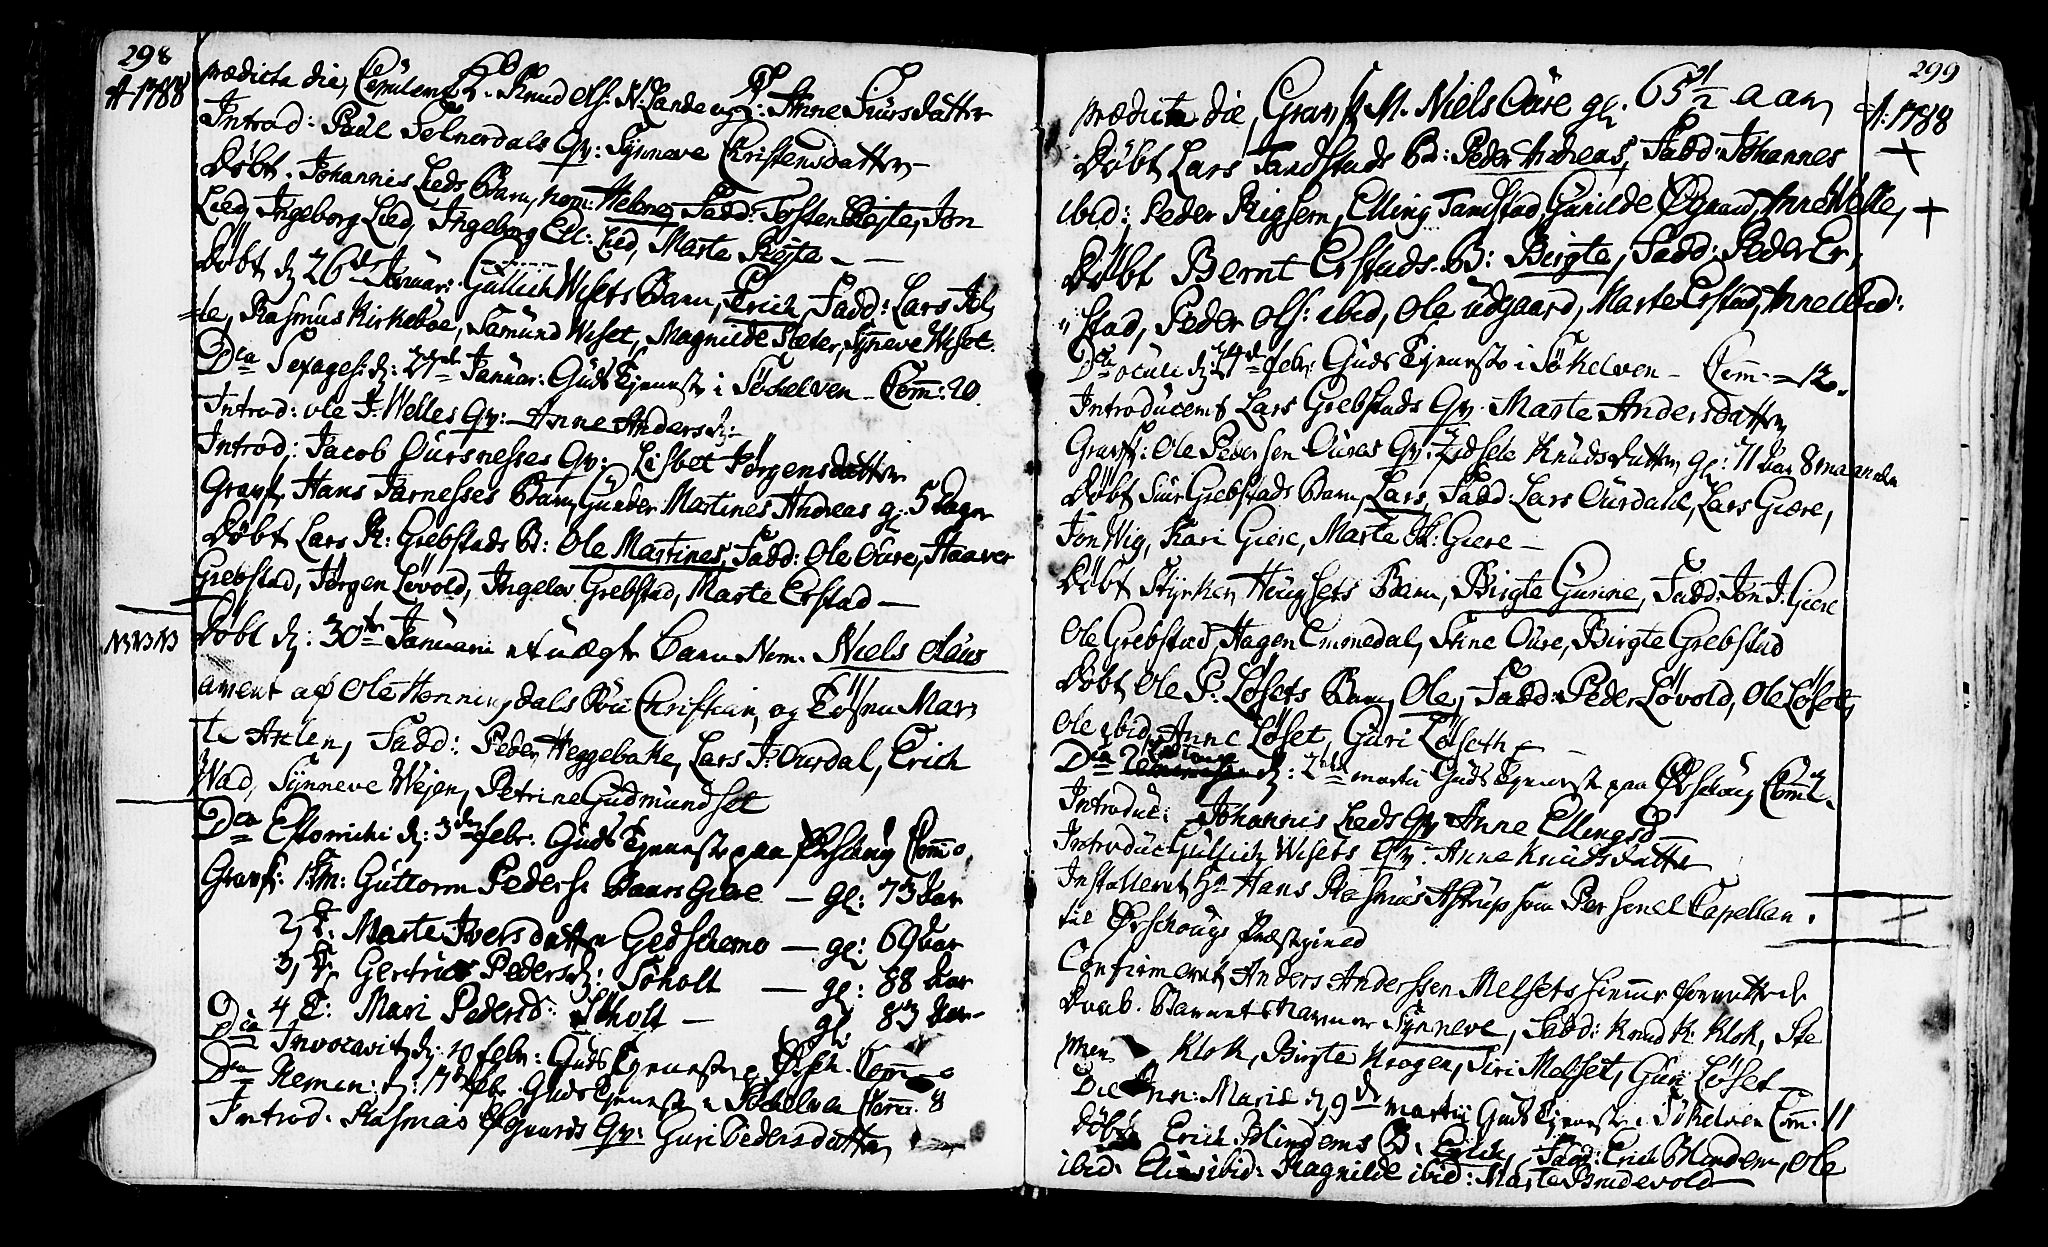 298
A 1788
prædicta die, Copulered K. Knud Ols: N: Lande og P: Anne Siursdatter
Introd: Poul Solnørdals Qv: Synneve Christensdatter
Døbt. Johannis Lieds Barn, nom: Helene, Fadd: Torsten Røyte, Jon
Lied, Ingeborg Lied, Ingeborg Ell: Lied, Marte Røyte
Døbt d 26de Januar: Gullich Wisets Barn, Erich, Fadd: Lars
le, Rasmus Kirkebøe, Samund Wiset, Magnilde Sæter, Synneve Wiset.
Dca Sexages: d: 27de Januar: Guds Tjeneste i Søkelven – Com: 20
Introd: Ole J: Welles Qv: Anne Andersd:
Introd: Jacob Oursnesses Qv: Lisbet Jørgensdatter
Gravf. Hans Tarnesses Barn Gunder Martines Andreas gl: 5 Dager
Døbt Lars R: Grebstads B: Ole Martines, Fadd: Ole Oure, Haaver
Grebstad, Jørgen Løvold, Angelev Grebstad, Marte Erstad –
NB NB
Døbt d: 30te Januarii et uægte Barn Nom. Niels Olaus
avlet af Ole Henningsdals Christian og Tøsen Mar
te Aklen, Fadd: Peder Heggebakke, Lars J: Ourdal, Erich
Wad, Synneve Wejen, Petrine Gudmundset
Dca Estomihi d: 3die febr. Guds Tjeneste paa Ørschoug Com 0
Gravf: 1 M: Guttorm Peders: Baars Giere – gl: 73 Aar
2, K. Marte Iversdatter Gedschemo – gl: 69 Aar
3, K. Gertrues Pedersd: Søholt – gl: 88 Aar
4 K: Mari Pedersd: Søholt – gl: 83 Aar
Dca Invocavit d: 10 febr: Guds Tjeneste p Ørsch. Com – 0
Dca Remin: d: 17de febr. Guds Tjeneste i Søkelven Com: 8
Introd. Rasmus Øsgaards Qv: Guri Pedersdatter
299
A: 1788
prædicta die, Gravf M. Niels Oure gl. 65 1/2 aar
Døbt Lars Tandstads B: Peder Andreas, Fadd: Johannes
ibid: Peder Rigsem, Elling Tandstad, Gunilde Øgaard, Anne Welle,
Døbt Bernt Erstads B: Birgte, Fadd: Peder Er,
stad, Peder Ols: ibid, Ole Udgaard, Marte Erstad, Anne ibid:
Dca Oculi d: 24de febr: Guds Tjeneste i Søkelven – Com – 12.
Introducered Lars Grebstads Qv. Marte Andersdatter
Gravf: Ole Pedersen Oures Qv: Zidsele Knudsdatter gl: 71 Aar 8 maaneder
Døbt Siur Grebstads Barn, Lars, Fadd: Lars Ourdahl, Lars Giere,
Jon Wig, Kari Giere, Marte K: Giere –
Døbt Styrker Heugsets Barn, Birgte Gurine, Fadd: Jon J: Giere
Ole Grebstad, Hagen Emmedal, Stine Oure, Birgte Grebstad
Døbt Ole P: Løsets Barn, Ole, Fadd: Peder Løvold, Ole Løset,
Ole ibid, Anne Løset, Guri Løseth
Dca Lætare d: 2de martii Guds Tjeneste paa Ørschoug Com 2
Introduc: Johannis Lieds Qv Anne Ellingsd
Introduc Gullich Wisets Qv: Anne Knudsdatter
Installeret Hr Hans Rasmus Astrup som Personel Capellan
til Ørschougs Præstegield
Confirmeret Anders Anderssen Melsets hiemme forrettede
Daab. Barnets Navn er Synneve, Fadd: Knud K: Klok, Ste
phen Klok, Birgte Krogen, Siri Melset, Guri Løset –
Die Ann: Mariæ d 9de martii Guds Tjeneste i Søkelven Com: 11
Døbt Erich Blindems B: Eilich, Fadd: Erich Blindem, Ole
ibid: Elias ibid: Ragnilde ibid: Marte Brudevold